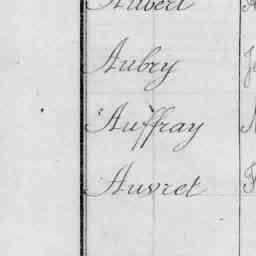 Aubert
Aubry
Auffray
Auvret